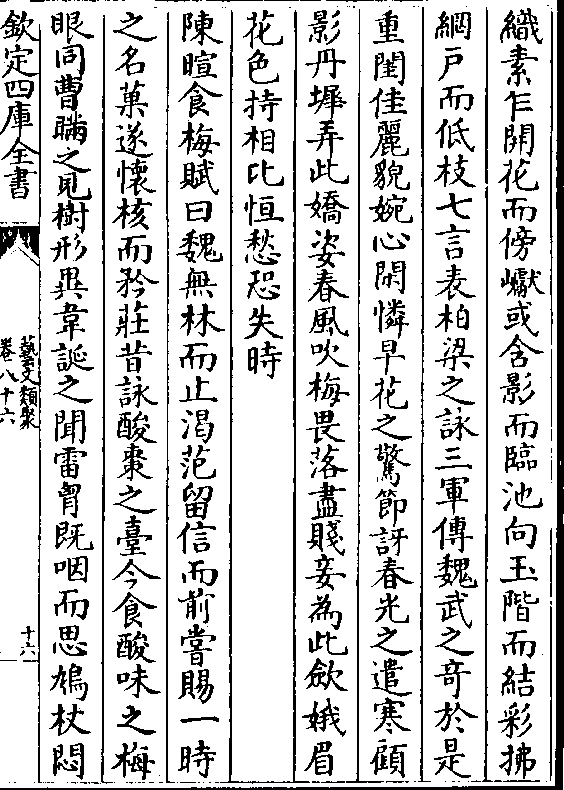 織素乍開花而傍巘或含影而臨池向玉階而結彩拂
網戸而低枝七言表柏梁之詠三軍傳魏武之奇於是
重閨佳麗貌婉心閑憐早花之驚節訝春光之遣寒顧
影丹墀弄此嬌姿春風吹梅畏落盡賤妾為此歛娥眉
花色持相比恒愁恐失時
陳暄食梅賦曰魏無林而止渴范留信而前嘗賜一時
之名菓遂懷核而矜莊昔詠酸棗之臺今食酸味之梅
眼同曹瞞之見樹形異韋誕之聞雷胷既咽而思鳩杖悶
欽定四庫全書
藝文類聚
卷八十六
十六